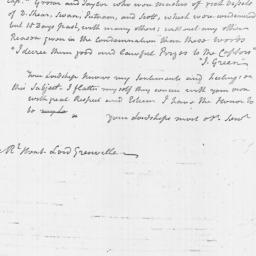 Capt. Groom and Taylor who were masters of
of J. Shear, Swain, Putnam, and Scott, which were condemned
but 18 Days past, with many others; without any other
Reason given in the Condemnation than these words
"I decree them good and Lawful Prizes to the Captors"
"J. Green"
Your Lordship knows my Sentiments and feelings on
this Subject. I flatter myself they concur with your own
with great Respect and Esteem I have the Honour to
be
Your Lordships most ob. Servt
Rt. Honl. Lord Grenville